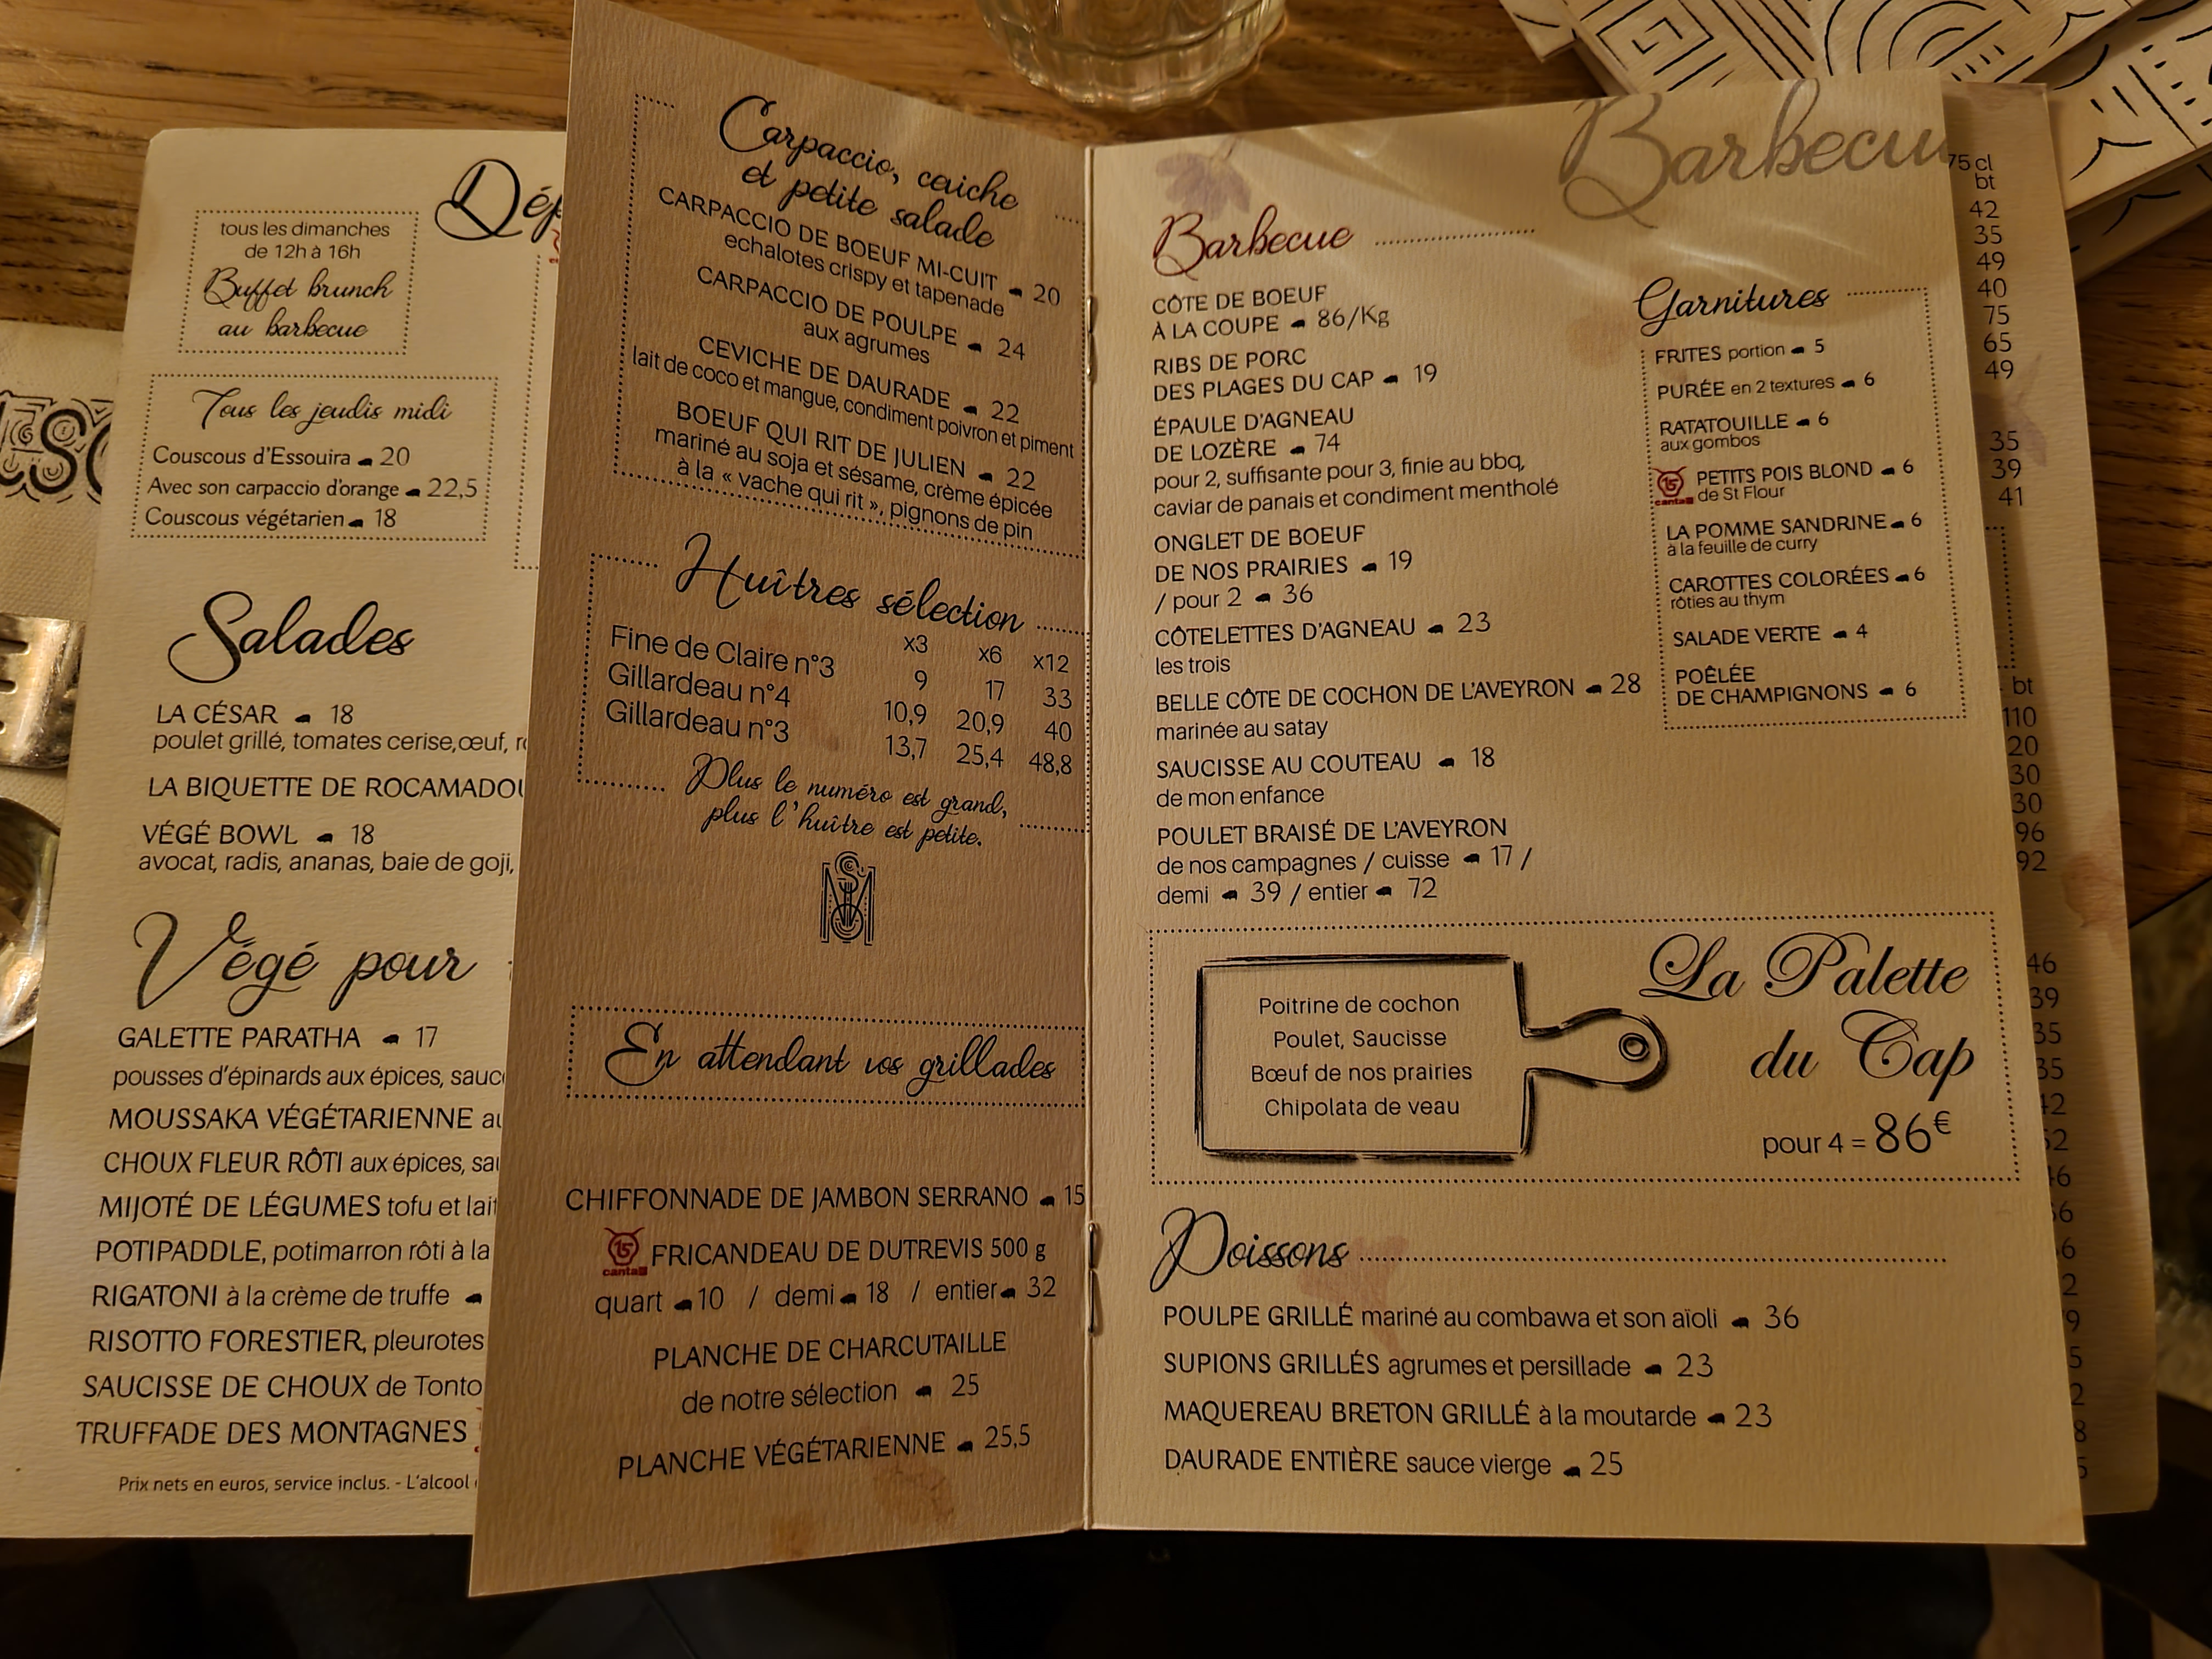 Dép
tous les dimanches
de 12h à 16h
Buffet brunch
au barbecue
Tous les jeudis midi
Couscous d'Essouira 20
Avec son carpaccio d'orange 22,5
Couscous végétarien 18
Salades
LA CÉSAR 18
poulet grillé, tomates cerise, œuf,
LA BIQUETTE DE ROCAMADOU
VÉGÉ BOWL 18
avocat, radis, ananas, baie de goji,
Végé pour
GALETTE PARATHA 17
pousses d'épinards aux épices, sauc
MOUSSAKA VÉGÉTARIENNE
CHOUX FLEUR RÔTI aux épices,
MIJOTÉ DE LÉGUMES tofu et lait
POTIPADDLE, potimarron rôti à la
RIGATONI à la crème de truffe
RISOTTO FORESTIER, pleurotes
SAUCISSE DE CHOUX de Tonto
TRUFFADE DES MONTAGNES
Prix nets en euros, service inclus. - L'alcool
Carpaccio, ceviche
et petite salade
CARPACCIO DE BOEUF MI-CUIT 20
echalotes crispy et tapenade
CARPACCIO DE POULPE 24
aux agrumes
CEVICHE DE DAURADE 22
lait de coco et mangue, condiment poivron et piment
BOEUF QUI RIT DE JULIEN 22
mariné au soja et sésame, crème épicée
à la « vache qui rit », pignons de pin
Huîtres sélection
x3 x6 x12
Fine de Claire n°3 9 17 33
Gillardeau n°4 10,9 20,9 40
Gillardeau n°3 13,7 25,4 48,8
Plus le numéro est grand,
plus l'huître est petite.
En attendant vos grillades
CHIFFONNADE DE JAMBON SERRANO 15
15 cantal FRICANDEAU DE DUTREVIS 500 g
quart 10 / demi 18 / entier 32
PLANCHE DE CHARCUTAILLE
de notre sélection 25
PLANCHE VÉGÉTARIENNE 25,5
Barbecue
Barbecue
CÔTE DE BOEUF
À LA COUPE 86/Kg
RIBS DE PORC
DES PLAGES DU CAP 19
ÉPAULE D'AGNEAU
DE LOZÈRE 74
pour 2, suffisante pour 3, finie au bbq,
caviar de panais et condiment mentholé
ONGLET DE BOEUF
DE NOS PRAIRIES 19
/ pour 2 36
CÔTELETTES D'AGNEAU 23
les trois
BELLE CÔTE DE COCHON DE L'AVEYRON 28
marinée au satay
SAUCISSE AU COUTEAU 18
de mon enfance
POULET BRAISÉ DE L'AVEYRON
de nos campagnes / cuisse 17 /
demi 39 / entier 72
Garnitures
FRITES portion 5
PURÉE en 2 textures 6
RATATOUILLE 6
aux gombos
15 cantal PETITS POIS BLOND 6
de St Flour
LA POMME SANDRINE 6
à la feuille de curry
CAROTTES COLORÉES 6
rôties au thym
SALADE VERTE 4
POÊLÉE
DE CHAMPIGNONS 6
Poitrine de cochon
Poulet, Saucisse
Bœuf de nos prairies
Chipolata de veau
La Palette
du Cap
pour 4 = 86€
Poissons
POULPE GRILLÉ mariné au combawa et son aïoli 36
SUPIONS GRILLÉS agrumes et persillade 23
MAQUEREAU BRETON GRILLÉ à la moutarde 23
DAURADE ENTIÈRE sauce vierge 25
75 cl
bt
42
35
49
40
75
65
49
35
39
41
bt
110
20
30
30
96
92
46
39
35